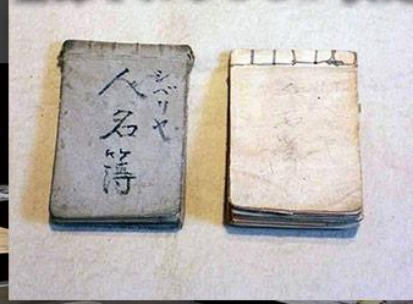 シベリヤ
人名簿